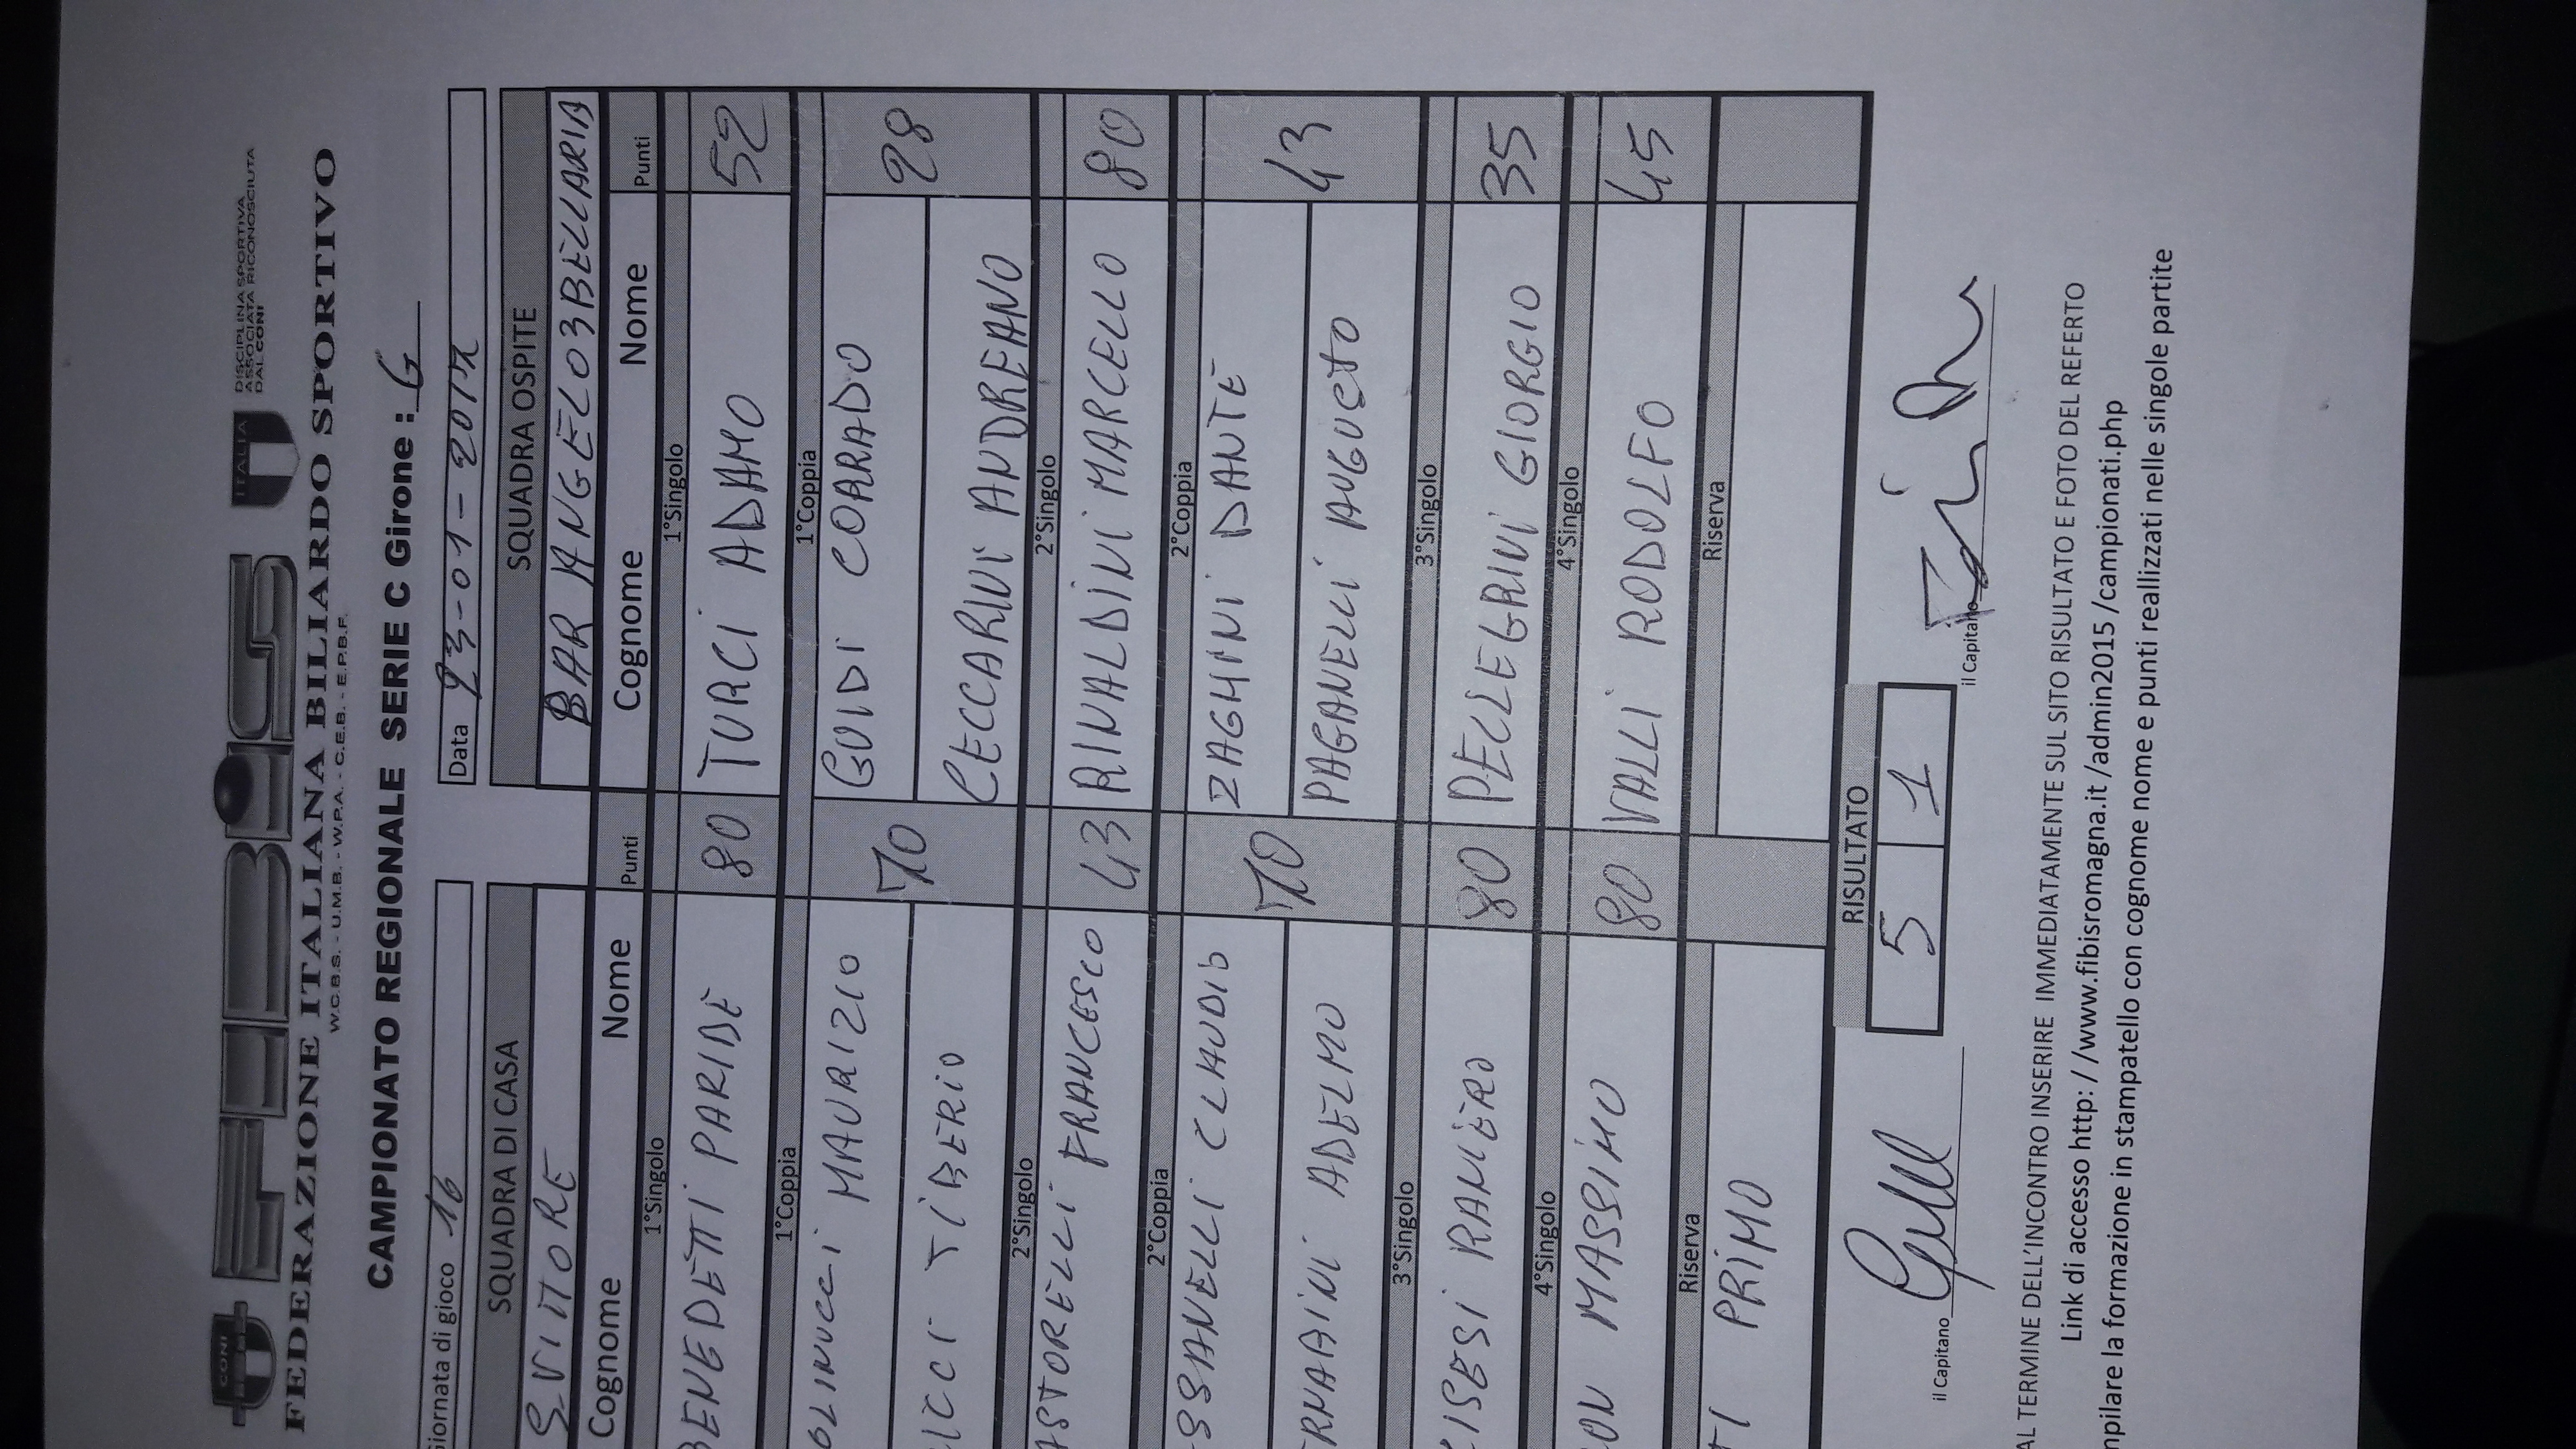 CONI FIBiS ITALIA DISCIPLINA SPORTIVA
ASSOCIATA RICONOSCIUTA
DAL CONI
FEDERAZIONE ITALIANA BILIARDO SPORTIVO
W.C.B.S. - U.M.B. - W.P.A. - C.E.B. - E.P.B.F.
CAMPIONATO REGIONALE SERIE C Girone : G
Giornata di gioco 16 Data 23-01-
SQUADRA DI CASA SQUADRA OSPITE
S.VITTORE BAR ANGELO3BELLARIA
Cognome Nome Punti Cognome Nome Punti
1°Singolo 1°Singolo
BENEDETTI PARIDE 80 TURCI ADAMO 52
1°Coppia 1°Coppia
OLINUCCI MAURIZIO 70 GUIDI CORRADO 28
ICCI TIBERIO CECCARINI ANDREANO
2°Singolo 2°Singolo
ASTORELLI FRANCESCO 43 RINALDINI MARCELLO 80
2°Coppia 2°Coppia
SSANELLI CLAUDIO 70 ZAGHINI DANTE 43
RNAINI ADELMO PAGANELLI AUGUSTO
3°Singolo 3°Singolo
ISESI RANIERO 80 PELLEGRINI GIORGIO 35
4°Singolo 4°Singolo
ON MASSIMO 80 VALLI RODOLFO 45
Riserva Riserva
TI PRIMO
RISULTATO
il Capitano 5 1 il Capitano
AL TERMINE DELL'INCONTRO INSERIRE IMMEDIATAMENTE SUL SITO RISULTATO E FOTO DEL REFERTO
Link di accesso http: / /www.fibisromagna.it /admin2015 /campionati.php
mpilare la formazione in stampatello con cognome nome e punti reallizzati nelle singole partite